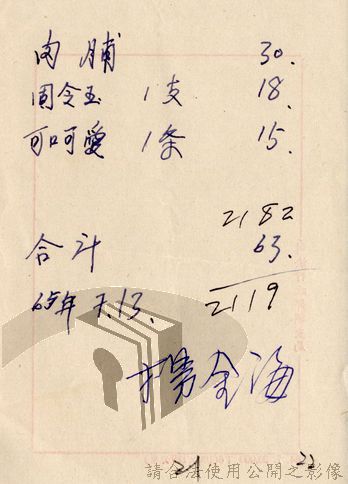 肉脯 30.
周令玉 1支 18.
可口可愛 1条 15.
2182
合计 63.
65年 7.13. 2119
楊金海
21 22
請合法使用公開之影像